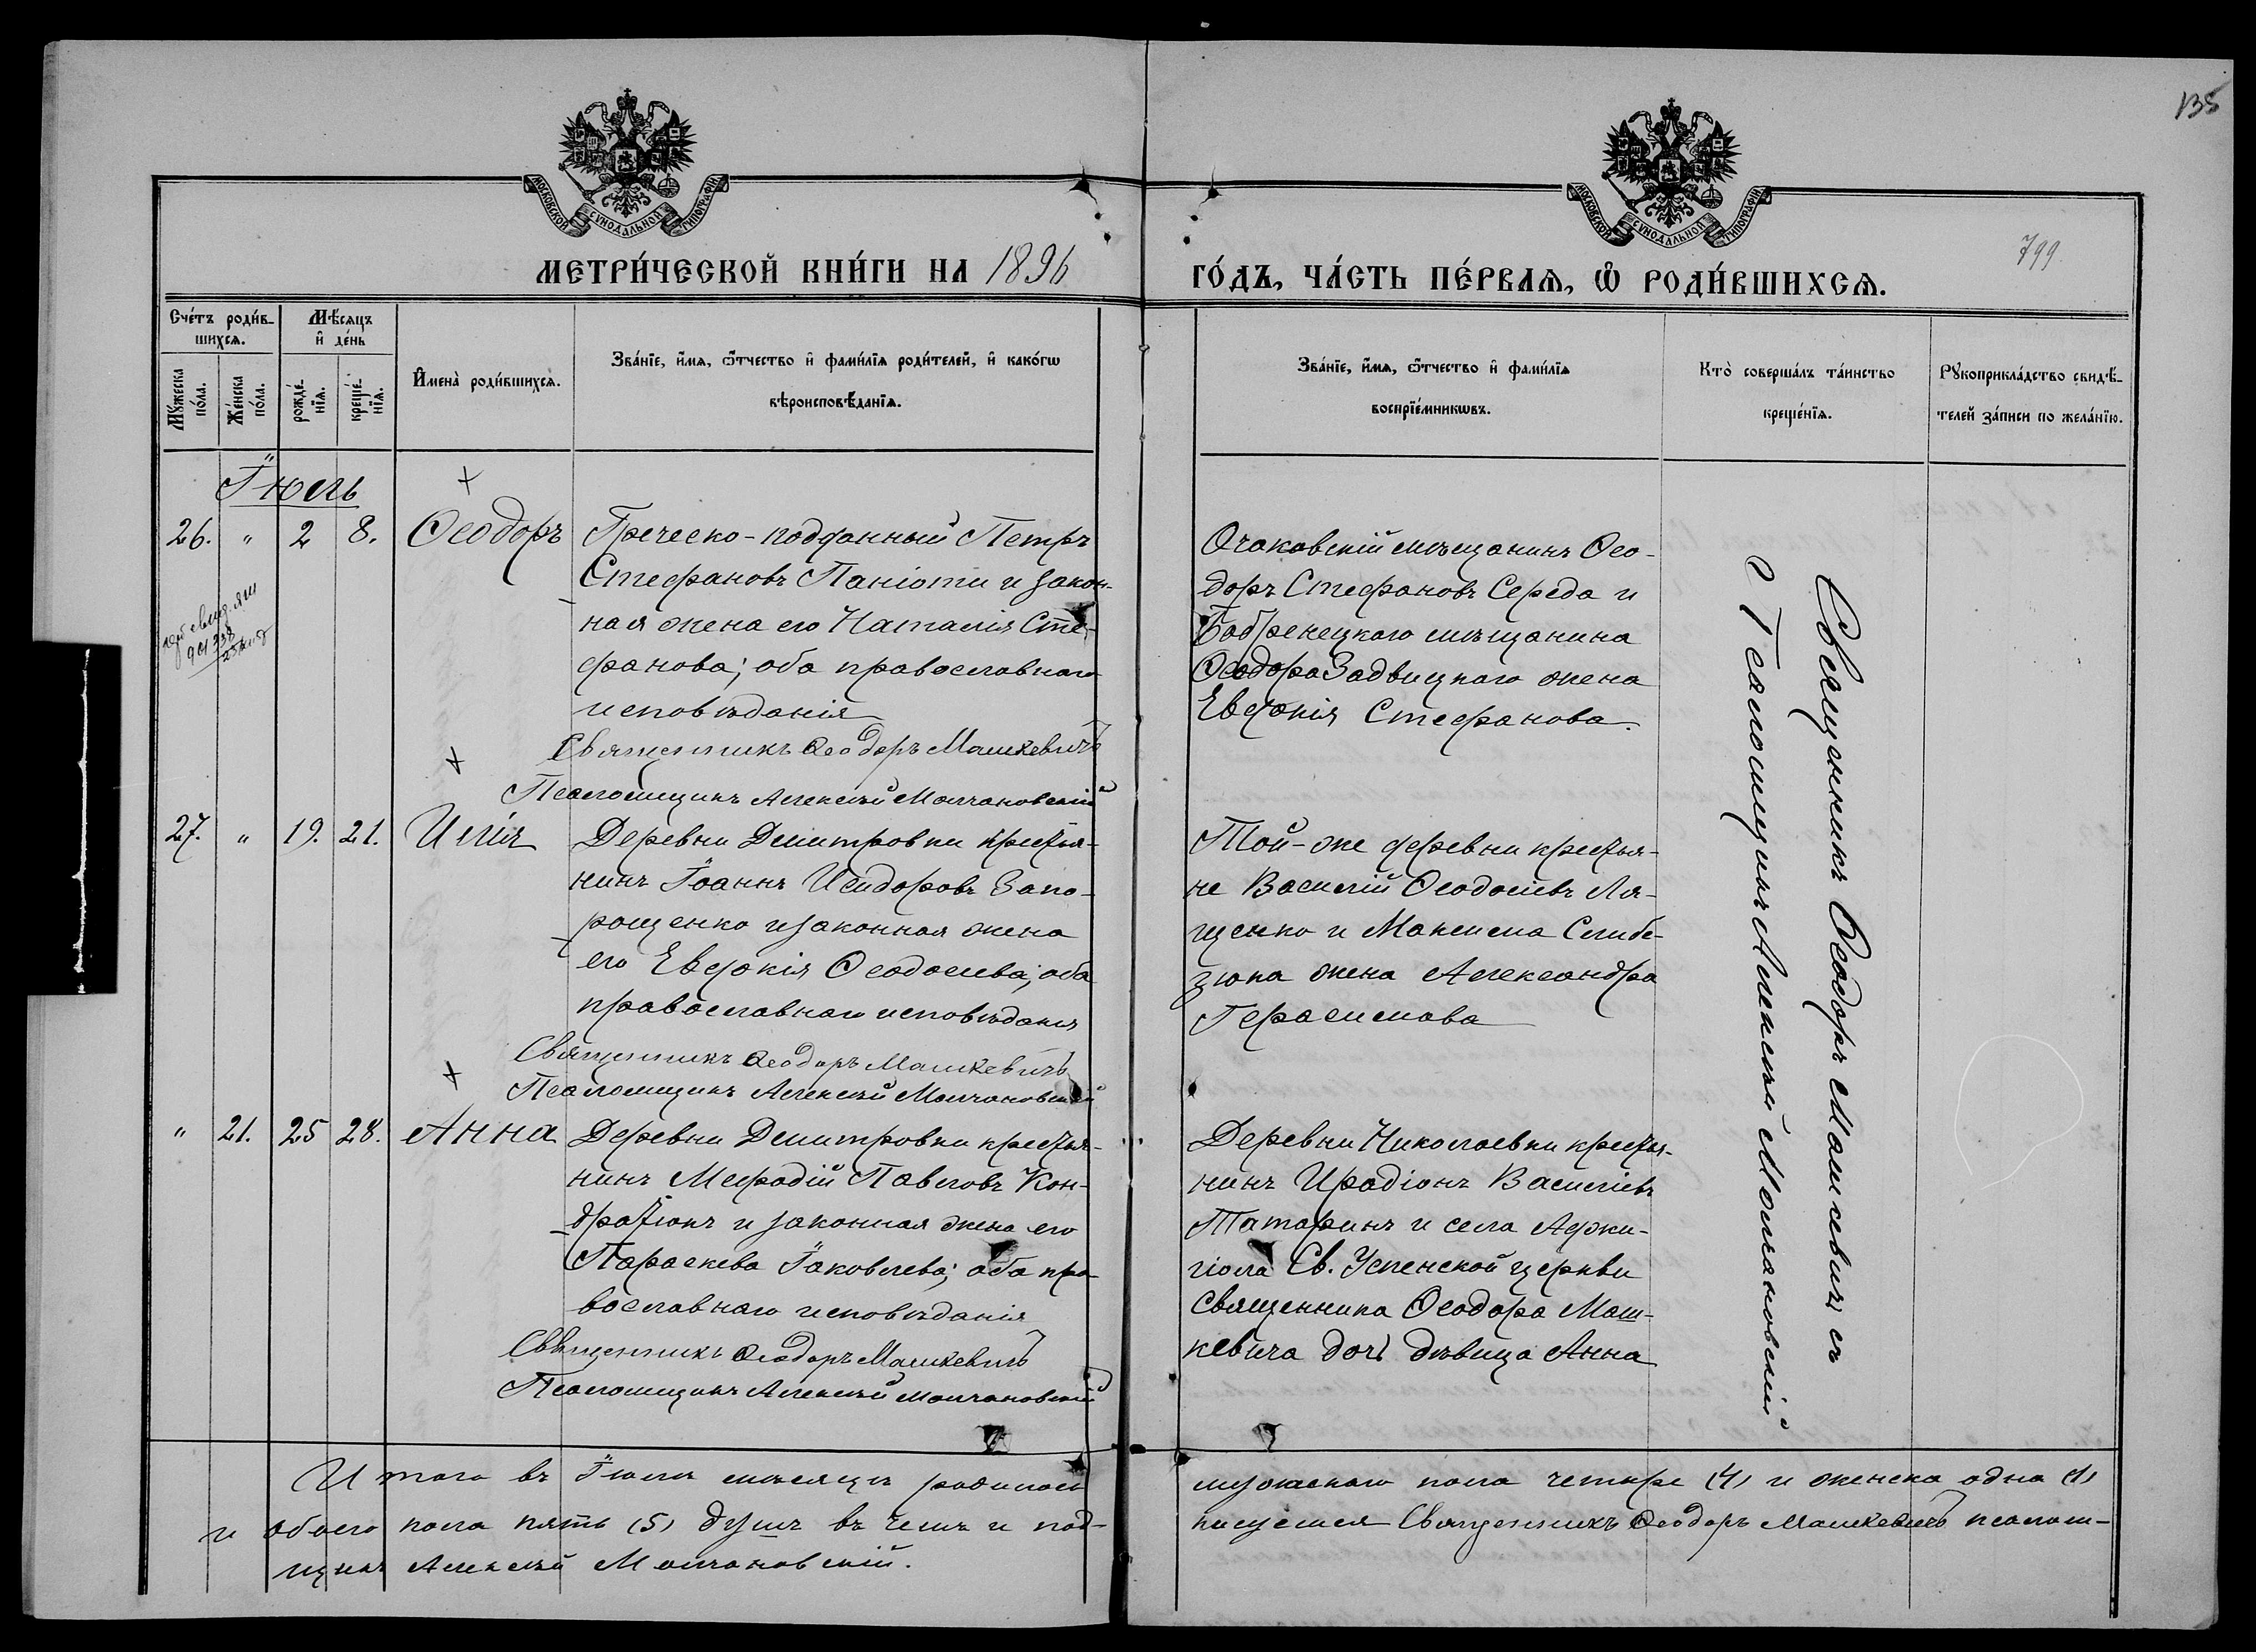 135
МОСКОВСКОЙ СѴНОДАЛЬНОЙ ТИПОГРАФІИ
МОСКОВСКОЙ СѴНОДАЛЬНОЙ ТИПОГРАФІИ
799
МЕТРИ́ЧЕСКОЙ КНИ́ГИ НА 1896
ГО́ДЪ, ЧА́СТЬ ПЕ́РВАЯ, Ѿ РОДИ́ВШИХСЯ.
Сче́тъ роди́в-
шихся.
Мѣ́сяцъ
и҆ де́нь
Му́жеска
по́ла.
Же́нска
по́ла.
рожде́-
нїя.
креще́-
нїя.
И҆мена̀ роди́вшихся.
Зва́нїе, и҆́мя, ѻ҆́тчество и҆ фами́лїя роди́телей, и҆ како́гѡ
вѣроисповѣ́данїя.
Зва́нїе, и҆́мя, ѻ҆́тчество и҆ фами́лїя
воспрїе́мникѡвъ.
Кто̀ соверша́лъ та́инство
креще́нїя.
Рꙋкоприкла́дство свидѣ́-
телей за́писи по жела́нїю.
Іюль
26. " 2 8. Ѳеодоръ
Греческо-подданный Петръ
Стефановъ Паніоти и закон-
ная жена его Наталія Сте-
фанова; оба православнаго
исповѣданія
Священникъ Ѳеодоръ Машкевичъ
Псаломщикъ Алексѣй Молчановскій
Очаковскій мѣщанинъ Ѳео-
доръ Стефановъ Середа и
Бобренецкаго мѣщанина
Ѳеодора Задвицкаго жена
Евдокія Стефанова.
27. " 19. 21. Илія
Деревни Димитровки крестья-
нинъ Іоаннъ Исидоровъ Запо-
рощенко и законная жена
его Евдокія Ѳеодосіева; оба
православнаго исповѣданія
Священникъ Ѳеодоръ Машкевичъ
Псаломщикъ Алексѣй Молчановскій
Той-же деревни крестья-
не Василій Ѳеодосіевъ Ля-
щенко и Максима
жена Александра
Герасимова
" 21. 25 28. Анна
Деревни Димитровки крестья-
нинъ Меѳодій Павловъ Кон-
дратюкъ и законная жена его
Параскева Іаковлева; оба пра-
вославнаго исповѣданія
Священникъ Ѳеодоръ Машкевичъ
Псаломщикъ Алексѣй Молчановскій
Деревни Николаевки крестья-
нинъ Иродіонъ Василіевъ
Татаринъ и села Аджи-
гіола Св. Успенской церкви
священника Ѳеодора Маш-
кевича дочь дѣвица Анна
Священникъ Ѳеодоръ Машкевичъ съ
Псаломщикомъ Алексѣй Молчановскій
Итого въ Іюлѣ мѣсяцѣ родилось
мужескаго пола четыре (4) и женска одна (1)
и обоего пола пять (5) душъ въ чемъ и под-
писуемся Священникъ Ѳеодоръ Машкевичъ псалом-
щикъ Алексѣй Молчановскій.